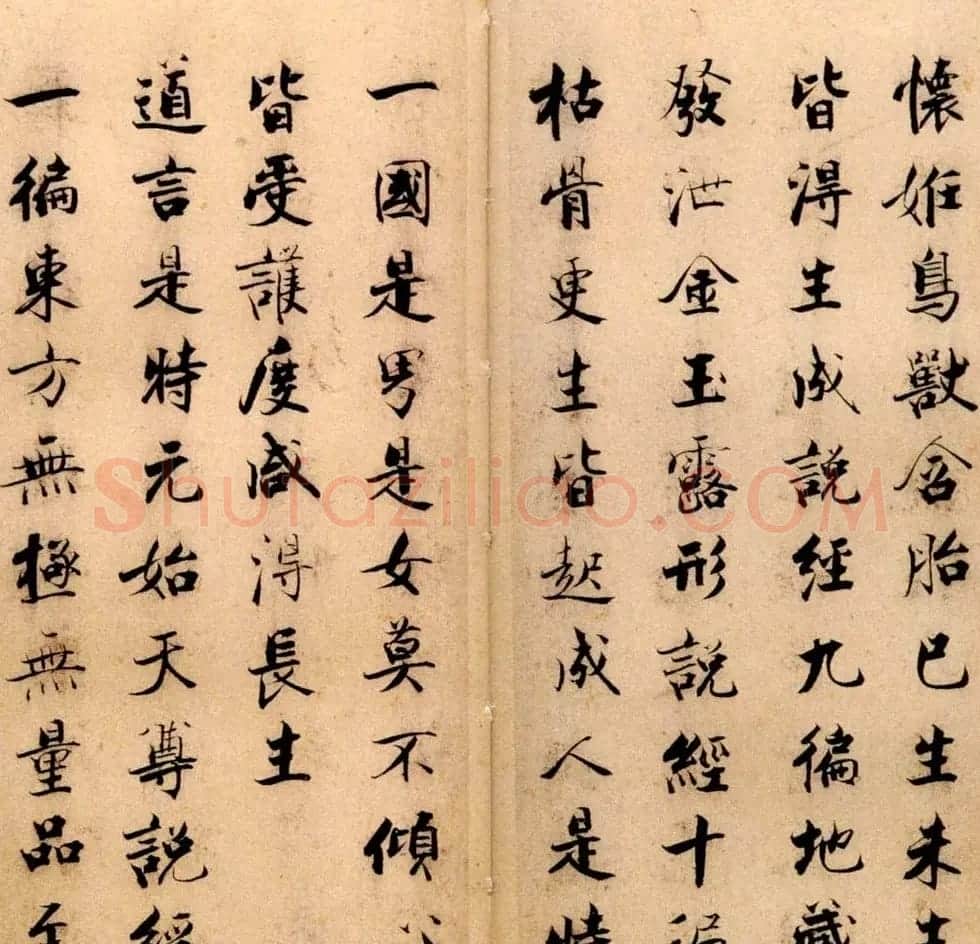 懷姙鳥獸含胎已生未生
皆得生成說經九徧地藏
發泄金玉露形說經十徧
枯骨更生皆起成人是時
一國是男是女莫不傾
皆受護度咸得長生
道言是時元始天尊說經
一徧東方無極無量品至
Shufaziliao.COM